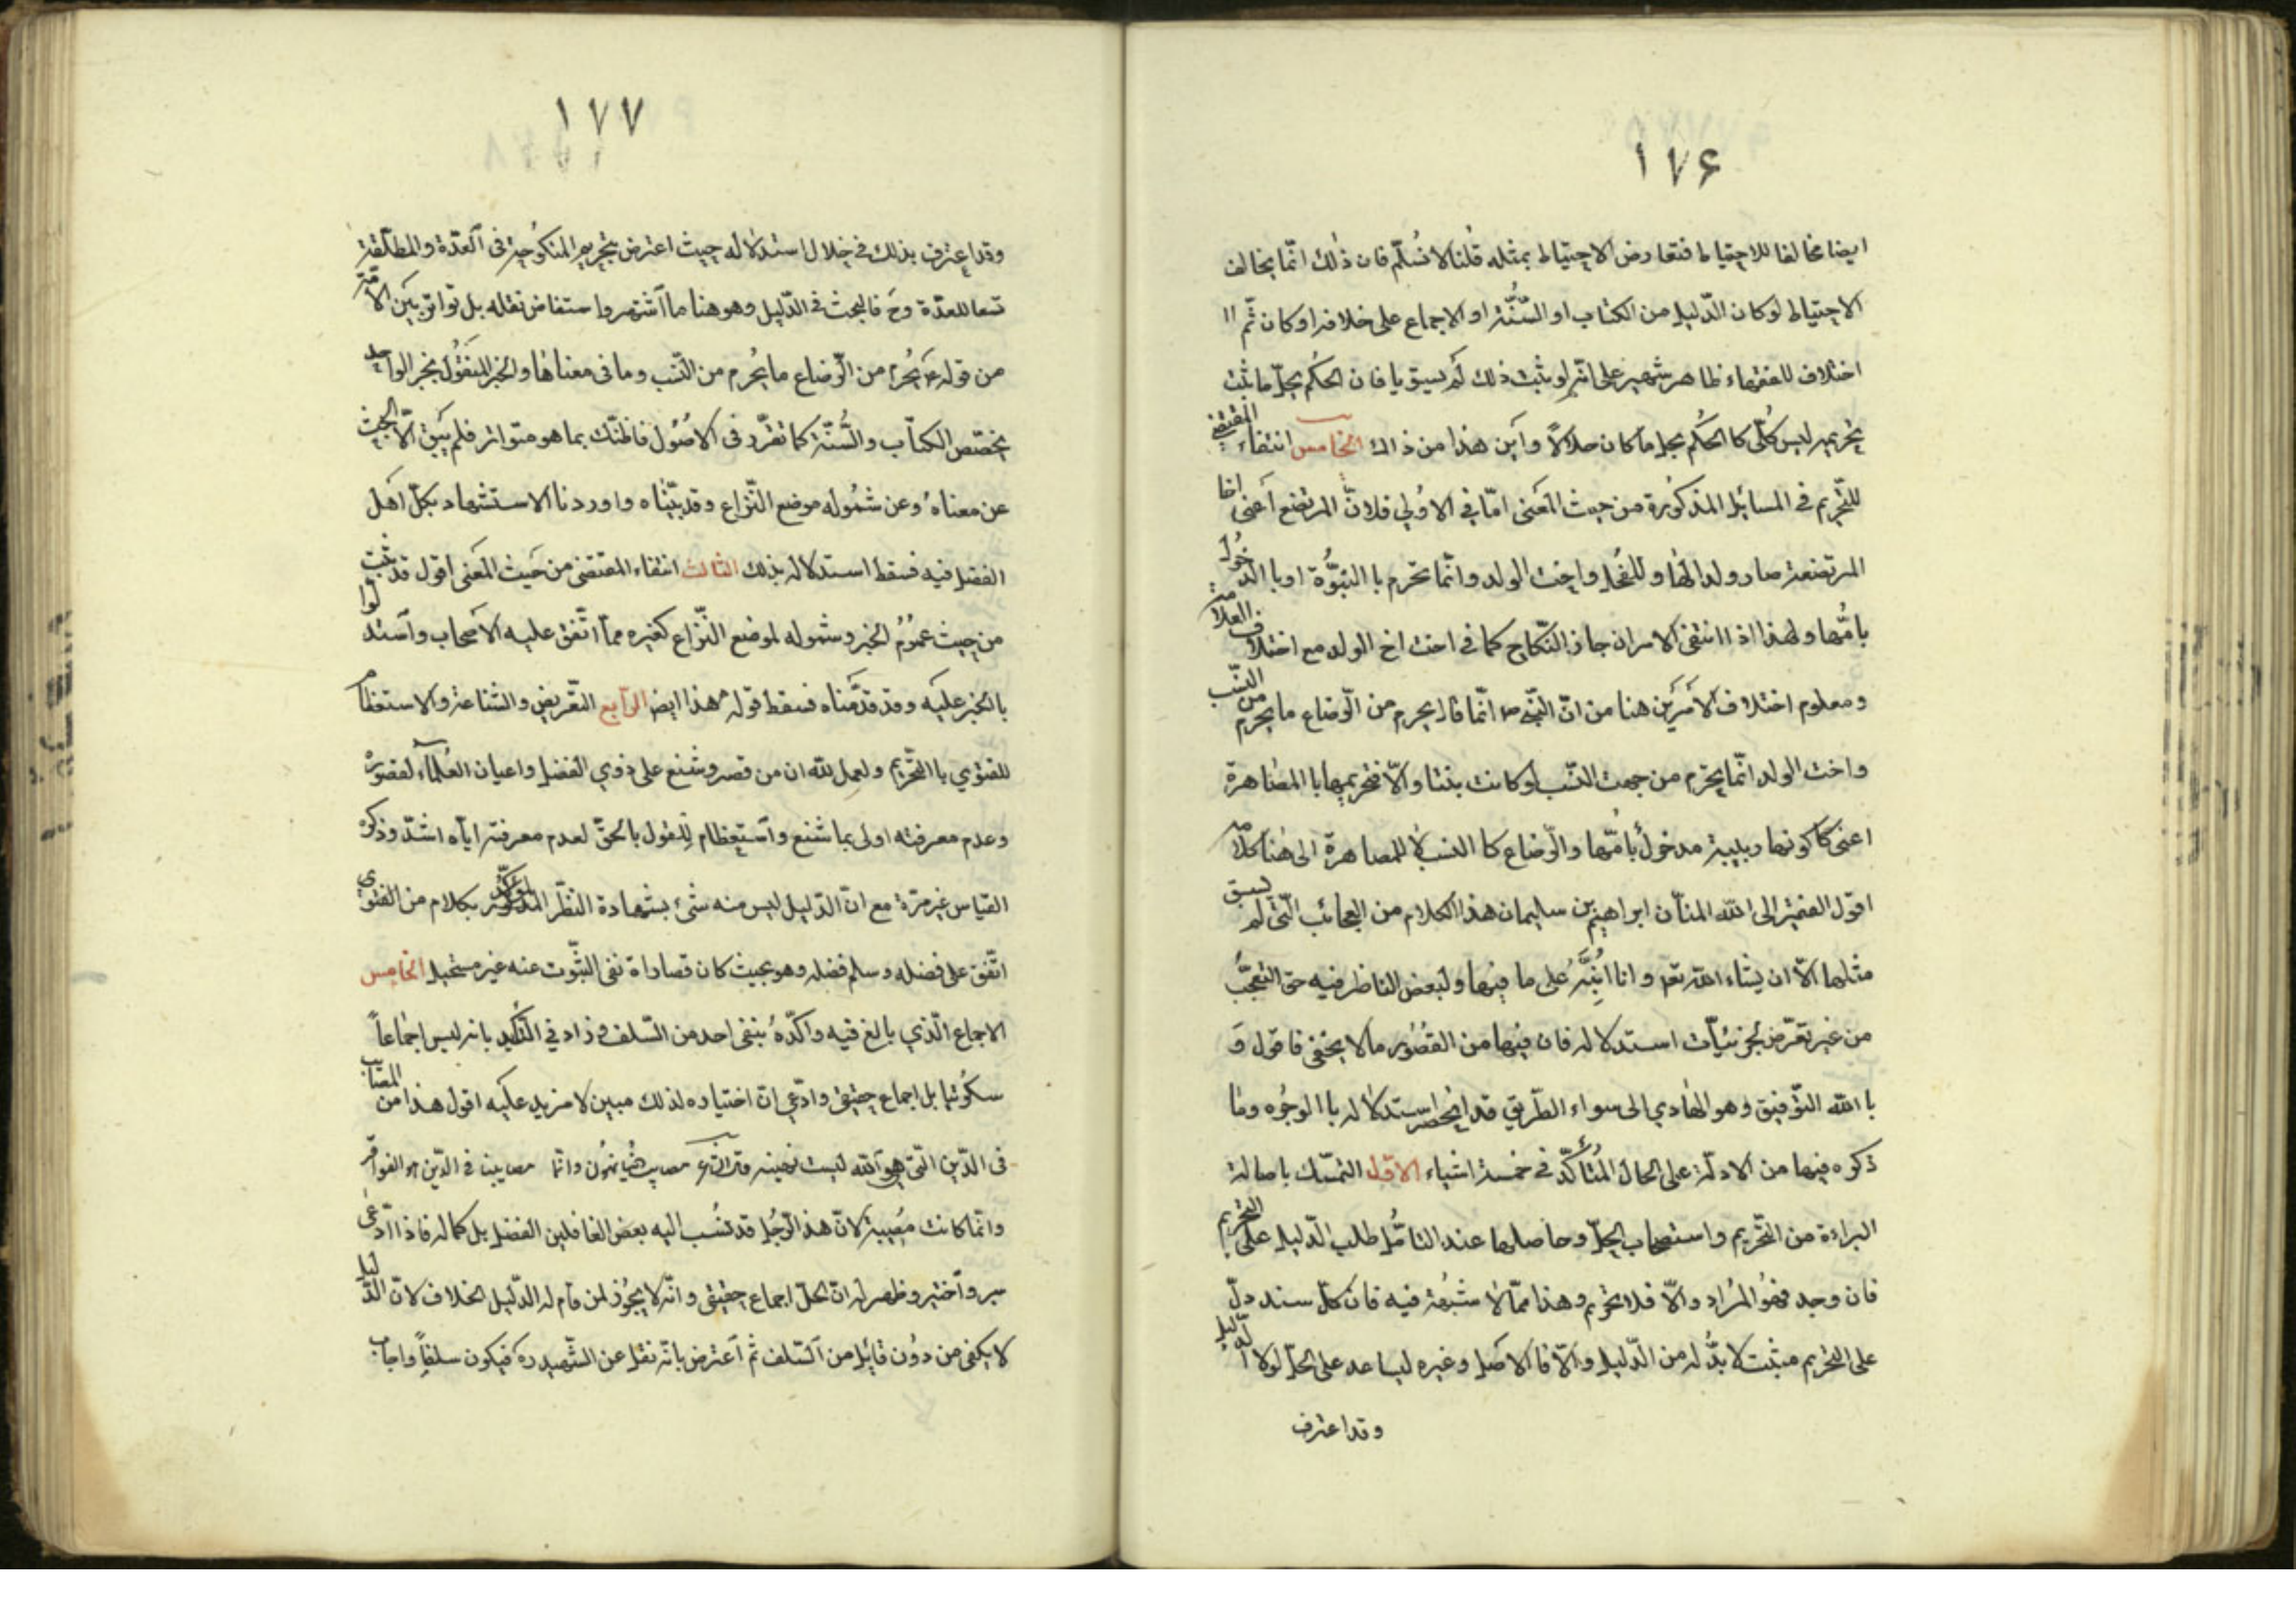 ١٧۶
ايضا مخالفا للاحتياط فتعارض الاحتياط بمثله قلنا لا نسلّم فان ذلك انّما يخالف
الاحتياط لو كان الدّليل من الكتاب او السّنّة او الاجماع على خلافه او كان ثمّ
اختلاف للفقهاء ظاهر شهير على انّه لو ثبت ذلك لم يستويا فان الحكم بحلّ ما ثبت
تحريمه ليس كلّى كالحكم بحل ما كان حلالاً واين هذا من ذاك الخامس انتفاء المقتضى
للتّحريم فى المسائل المذكورة من حيث المعنى امّا فى الاولى فلانّ المرتضع اعنى اخا
المرتضعة صار ولدا لها وللفحل واخت الولد وانّما تحرم با البنوّة او با الدّخول
بامّها ولهذا اذا انتفى الامران جاز النّكاح كما فى اخت اخ الولد مع اختلاف العلّامة
ومعلوم اختلاف الامرين هنا من انّ النّبى ص انّما قال يحرم من الرّضاع ما يحرم من النّسب
واخت الولد انّما يحرم من جهت النّسب لو كانت بنتا والّا فتحريمها با المصاهرة
اعنى كا كونها ربيبة مدخول بامّها والرّضاع كا النسب لا للمصاهرة الى هنا كلامه
اقول الفقير الى الله المنّان ابراهيم بن سليمان هذا الكلام من العجائب الّتى لم يسبق
مثلها الّا ان يشاء الله تعه وانا انبّه على ما فيها ولبعض الناظر فيه حق التعجّب
من غير تعرّض لجزئيّات استدلاله فان فيها من القصور ما لا يخفى فاقول و
با الله التّوفيق وهو الهادي الى سواء الطّريق قد انحصر استدلاله با الوجوه وما
ذكره فيها من الادلّة على الحال المتأكّد فى خمسة اشياء الاوّل التمسّك باصالة
البراءة من التّحريم واستصحاب الحلّ وحاصلها عند التامّل طلب الدّليل على التّحريم
فان وجد فهو المراد والّا فلا تحريم وهذا ممّا لا شبهة فيه فان كلّ سند دلّ
على التحريم مثبت لا بدّ له من الدّليل والّا فا الاصل وغيره ليساعد على الحلّ لولا الدّليل
وقد اعترف
١٧٧
وقد اعترف بذلك فى خلال استدلاله حيث اعترض بتحريم المنكوحة فى العدّة والمطلّقة
تسعا للعدّة وح فالبحث فى الدّليل وهو هنا ما اشتهر واستفاض نقله بل تواتر بين الامّة
من قوله ع يحرم من الرّضاع ما يحرم من النّسب وما فى معناها والخبر المنقول بخبر الواحد
يخصّص الكتاب والسّنّة كما تقرّر فى الاصول فا ظنّك بما هو متواتر فلم يبق الّا البحث
عن معناه وعن شموله موضع النّزاع وقد بيّنّاه واوردنا الاستشهاد بكلّ اهل
الفضل فيه فسقط استدلاله بذلك الثالث انتفاء المقتضى من حيث المعنى اقول قد ثبت
من حيث عموم الخبر وشموله لموضع النّزاع كغيره ممّا اتّفق عليه الاصحاب واستدلّوا
بالخبر عليه وقد قدّمناه فسقط قوله هذا ايض الرّابع التّعريض والشّناعة والاستعظام
للفتوى با التّحريم ولعمل لله ان من قصر وشنع على ذوي الفضل واعيان العلماء لقصوره
وعدم معرفته اولى بما شنع واستعظام للقول بالحقّ لعدم معرفته ايّاه اشدّ وذكره
القياس غير مرّة مع انّ الدّليل ليس منه شئ بشهادة النظر المذكور بكلام من الفتوى
اتّفق على فضله وسلم فضله وهو بحيث كان قصاراة نفى الثّبوت عنه غير مستحيل الخامس
الاجماع الّذي بالغ فيه واكّده بنفى احد من السّلف وزاد فى التّاكيد بانه ليس اجماعاً
سكوتيا بل اجماع حقيقى وادّعى انّ اختياره لذلك مبين لا مزيد عليه اقول هذا من المصائب
فى الدّين الّتى هو الله ليست بهينه مصايب وانّما مصايبنا فى الدّين
وانّما كانت مصيبة لانّ هذا الرّجل قد نسب اليه بعض الغافلين الفضل بل كماله فاذا ادّعى
سبر واختبر وظهر له انّ الحلّ اجماع حقيقى وانّه لا يجوز لمن قام له الدّليل الخلاف لانّ الدّليل
لا يكفى من دون قائل من السّلف ثم اعترض بانّه نقل عن الشّهيد ره فيكون سلفاً واجاب